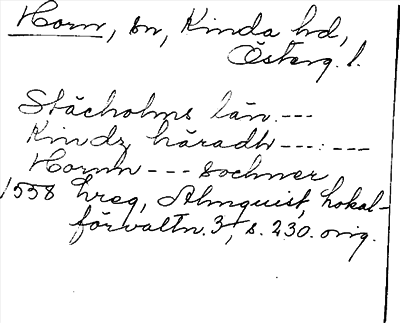 Horn, sn, Kinda hd,
Österg. l.
Stächolms län ---
Kindz häradh --- : ---
Hornn --- sochner
1558 hreg, Almquist, Lokal-
förvaltn. 3, s. 230. orig.